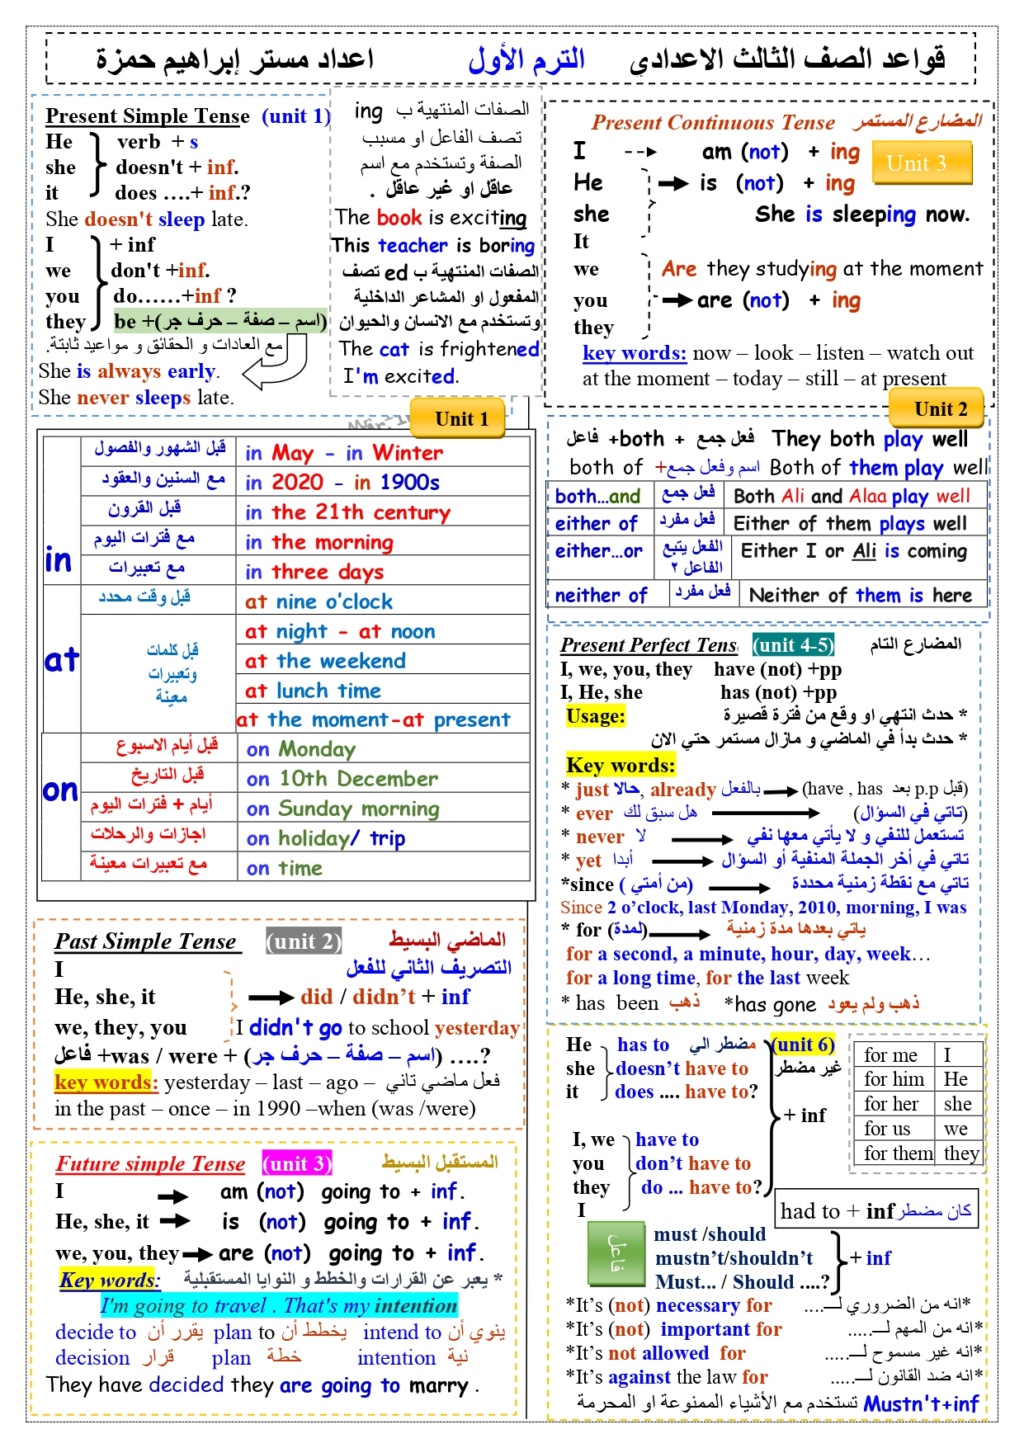 قواعد الصف الثالث الاعدادى الترم الأول اعداد مستر إبراهيم حمزة
Present Simple Tense (unit 1)
He verb + s
she doesn't + inf.
it does ….+ inf.?
She doesn't sleep late.
I + inf
we don't +inf.
you do……+inf ?
they be +(اسم – صفة – حرف جر)
مع العادات و الحقائق و مواعيد ثابتة.
She is always early.
She never sleeps late.
الصفات المنتهية ب ing
تصف الفاعل او مسبب
الصفة وتستخدم مع اسم
عاقل او غير عاقل .
The book is exciting
This teacher is boring
الصفات المنتهية ب ed تصف
المفعول او المشاعر الداخلية
وتستخدم مع الانسان والحيوان
The cat is frightened
I'm excited.
Present Continuous Tense المضارع المستمر
Unit 3
I am (not) + ing
He is (not) + ing
she She is sleeping now.
It
we Are they studying at the moment
you are (not) + ing
they
key words: now – look – listen – watch out
at the moment – today – still – at present
Unit 1
in
قبل الشهور والفصول in May - in Winter
مع السنين والعقود in 2020 - in 1900s
قبل القرون in the 21th century
مع فترات اليوم in the morning
مع تعبيرات in three days
at
قبل وقت محدد at nine o'clock
قبل كلمات وتعبيرات معينة
at night - at noon
at the weekend
at lunch time
at the moment-at present
on
قبل أيام الاسبوع on Monday
قبل التاريخ on 10th December
أيام + فترات اليوم on Sunday morning
اجازات والرحلات on holiday/ trip
مع تعبيرات معينة on time
Unit 2
فاعل +both + فعل جمع They both play well
both of +اسم وفعل جمع Both of them play well
both…and فعل جمع Both Ali and Alaa play well
either of فعل مفرد Either of them plays well
either…or الفعل يتبع الفاعل ٢ Either I or Ali is coming
neither of فعل مفرد Neither of them is here
Present Perfect Tens (unit 4-5) المضارع التام
I, we, you, they have (not) +pp
I, He, she has (not) +pp
Usage: * حدث انتهي او وقع من فترة قصيرة
* حدث بدأ في الماضي و مازال مستمر حتي الان
Key words:
* just حالا, already بالفعل (have , has بعد p.p قبل)
* ever هل سبق لك (تاتي في السؤال)
* never لا تستعمل للنفي و لا يأتي معها نفي
* yet أبدا تاتي في أخر الجملة المنفية أو السؤال
*since (من أمتي ) تاتي مع نقطة زمنية محددة
Since 2 o'clock, last Monday, 2010, morning, I was
* for (لمدة) ياتي بعدها مدة زمنية
for a second, a minute, hour, day, week…
for a long time, for the last week
* has been ذهب *has gone ذهب ولم يعود
Past Simple Tense (unit 2) الماضي البسيط
I التصريف الثاني للفعل
He, she, it did / didn't + inf
we, they, you I didn't go to school yesterday
فاعل +was / were + (اسم – صفة – حرف جر) ….?
key words: yesterday – last – ago – فعل ماضي تاني
in the past – once – in 1990 –when (was /were)
Future simple Tense (unit 3) المستقبل البسيط
I am (not) going to + inf.
He, she, it is (not) going to + inf.
we, you, they are (not) going to + inf.
Key words: * يعبر عن القرارات والخطط و النوايا المستقبلية
I'm going to travel . That's my intention
decide to يقرر أن plan to يخطط أن intend to ينوي أن
decision قرار plan خطة intention نية
They have decided they are going to marry .
He has to مضطر الي (unit 6)
she doesn't have to غير مضطر
it does .... have to?
+ inf
I, we have to
you don't have to
they do ... have to?
I
for me I
for him He
for her she
for us we
for them they
had to + inf كان مضطر
فاعل
must /should
mustn't/shouldn't + inf
Must... / Should ....?
*It's (not) necessary for *انه من الضروري لــ....
*It's (not) important for *انه من المهم لــ.....
*It's not allowed for *انه غير مسموح لــ.....
*It's against the law for *انه ضد القانون لــ.....
Mustn't+inf تستخدم مع الأشياء الممنوعة او المحرمة